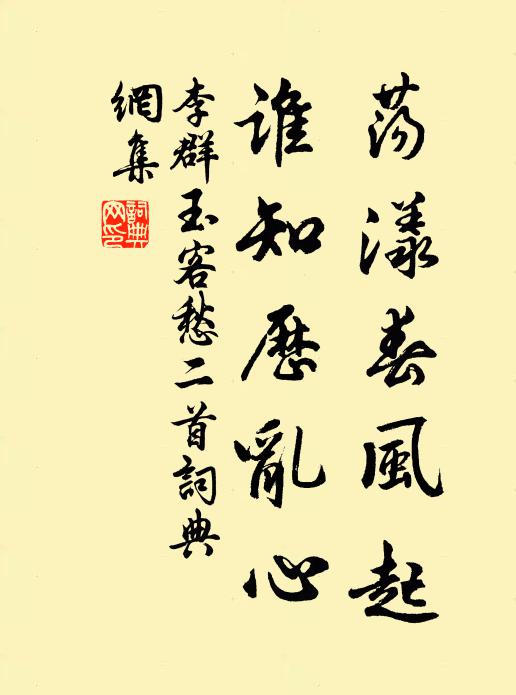 荡漾春風起
誰知歷亂心
李群玉客愁二首詞典
網集
詞典
网印